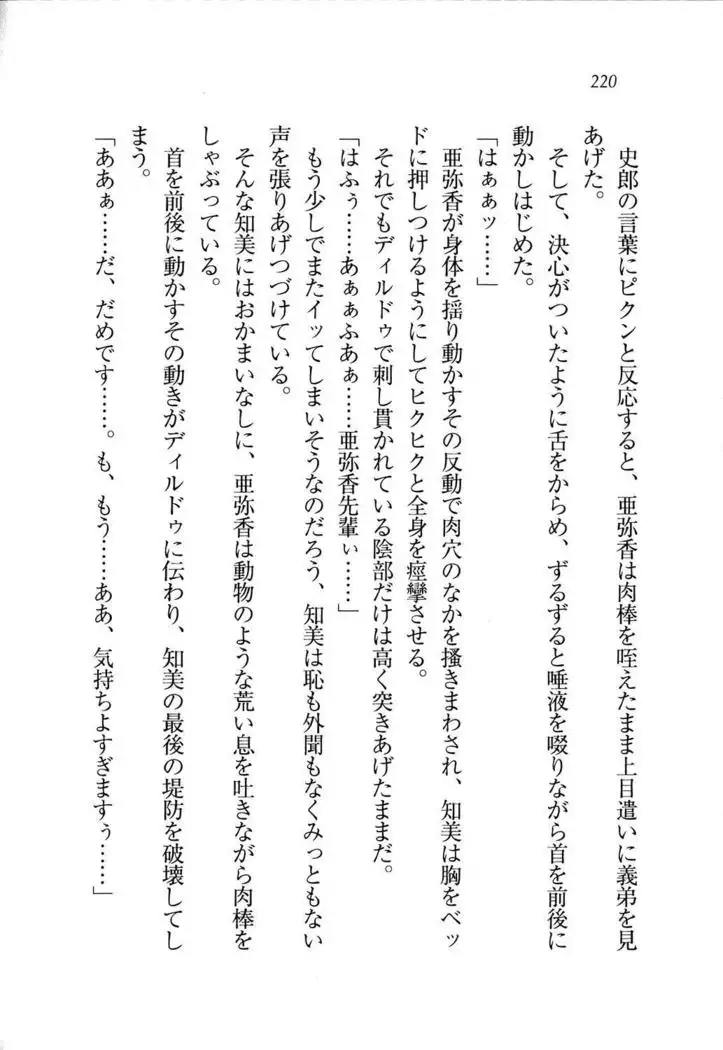 220
史郎の言葉にピクンと反応すると、亜弥香は肉棒を咥えたまま上目遣いに義弟を見
あげた。
そして、決心がついたように舌をからめ、ずるずると唾液を啜りながら首を前後に
動かしはじめた。
「はぁぁッ……」
亜弥香が身体を揺り動かすその反動で肉穴のなかを掻きまわされ、知美は胸をベッ
ドに押しつけるようにしてヒクヒクと全身を痙攣させる。
それでもディルドゥで刺し貫かれている陰部だけは高く突きあげたままだ。
「はふぅ……あぁぁふあぁ……亜弥香先輩ぃ……」
もう少しでまたイッてしまいそうなのだろう、知美は恥も外聞もなくみっともない
声を張りあげつづけている。
そんな知美にはおかまいなしに、亜弥香は動物のような荒い息を吐きながら肉棒を
しゃぶっている。
首を前後に動かすその動きがディルドゥに伝わり、知美の最後の堤防を破壊してし
まう。
「ああぁ……だ、だめです……。も、もう……ああ、気持ちよすぎますぅ……」